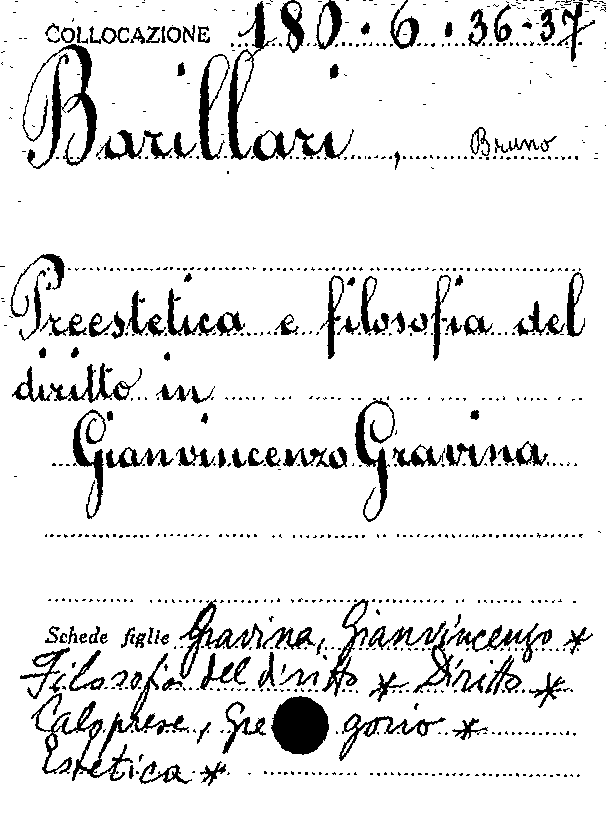 COLLOCAZIONE 180.6.36-37
Barillari, Bruno
Preestetica e filosofia del
diritto in
Gianvincenzo Gravina
Schede figlie Gravina, Gianvincenzo *
Filosofia del diritto * Diritto *
Caloprese, Gregorio *
Estetica *